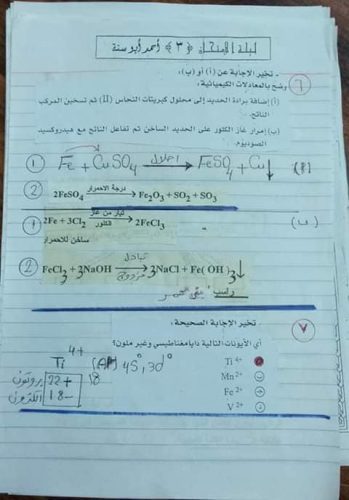 ليلة الامتحان (٣) أحمد أبو سنة
- تخير الإجابة عن (أ) أو (ب):
٦ وضح بالمعادلات الكيميائية:
(أ) إضافة برادة الحديد إلى محلول كبريتات النحاس (II) ثم تسخين المركب
الناتج.
(ب) إمرار غاز الكلور على الحديد الساخن ثم تفاعل الناتج مع هيدروكسيد
الصوديوم.
① Fe + CuSO4 —احلال→ FeSO4 + Cu↓ (أ)
② 2FeSO4 —درجة الاحمرار→ Fe2O3 + SO2 + SO3
① 2Fe + 3Cl2 —تيار من غاز الكلور→ 2FeCl3 (ب)
ساخن للاحمرار
② FeCl3 + 3NaOH —تبادل مزدوج→ 3NaCl + Fe(OH)3↓
راسب بنى محمر
٧ - تخير الإجابة الصحيحة:
أي الأيونات التالية دايامغناطيسي وغير ملون؟
Ti 4+
Mn 2+
Fe 2+
V 2+
Ti4+ (Ar) 4S0, 3d0
18
بروتون 22+
الكترون 18-